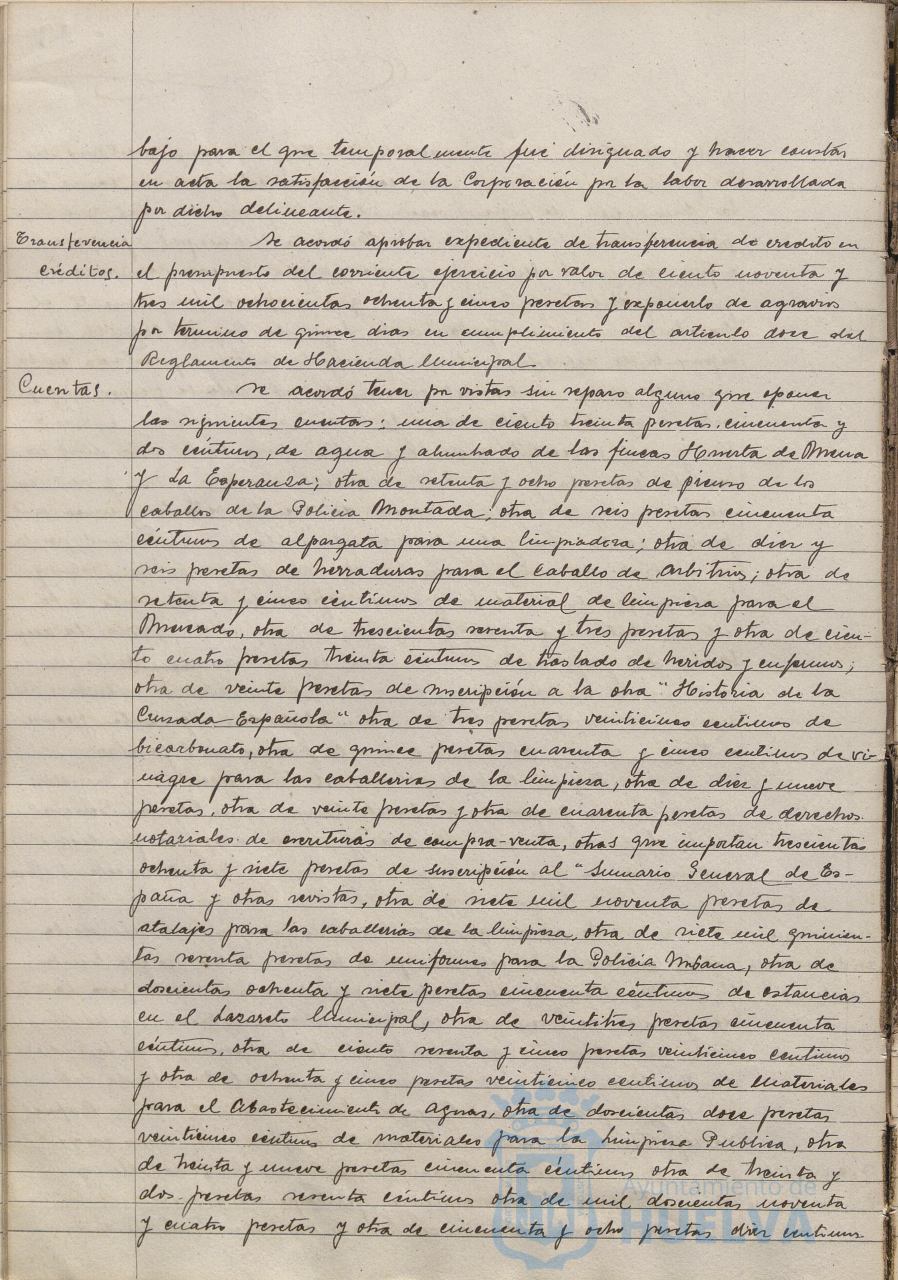 bajo para el que temporalmente fué disignado y hacer constar
en acta la satisfacción de la Corporación por la labor desarrollada
por dicho delineante.
Transferencia
créditos.
Se acordó aprobar expediente de transferencia de credito en
el presupuesto del corriente ejercicio por valor de ciento noventa y
tres mil ochocientas ochenta y cinco pesetas y exponerlo de agravios
por termino de quince dias en cumplimiento del articulo doce del
Reglamento de Hacienda Municipal.
Cuentas.
Se acordó tener por vistas sin reparo alguno que oponer
las siguientes cuentas: una de ciento treinta pesetas, cincuenta y
dos céntimos, de agua y alumbrado de las fincas Huerta de Mena
y La Esperanza; otra de setenta y ocho pesetas de pienso de los
caballos de la Policia Montada; otra de seis pesetas cincuenta
céntimos de alpargata para una limpiadora; otra de diez y
seis pesetas de herraduras para el caballo de Arbitrios; otra de
setenta y cinco céntimos de material de limpieza para el
Mercado, otra de trescientas sesenta y tres pesetas y otra de cien-
to cuatro pesetas treinta céntimos de traslado de heridos y enfermos;
otra de veinte pesetas de inscripción a la obra "Historia de la
Cruzada Española" otra de tres pesetas veinticinco centimos de
bicarbonato, otra de quince pesetas cuarenta y cinco centimos de vi-
nagre para las caballerias de la limpieza, otra de diez y nueve
pesetas, otra de veinte pesetas y otra de cuarenta pesetas de derechos
notariales de escrituras de compra-venta, otras que importan trescientas
ochenta y siete pesetas de suscripción al "Sumario General de Es-
paña y otras revistas, otra de siete mil noventa pesetas de
atalajes para las caballerias de la limpieza, otra de siete mil quinien-
tas sesenta pesetas de uniformes para la Policia Urbana, otra de
doscientas ochenta y siete pesetas cincuenta céntimos de estancias
en el Lazareto Municipal, otra de veintitres pesetas cincuenta
céntimos, otra de ciento sesenta y cinco pesetas veinticinco centimos
y otra de ochenta y cinco pesetas veinticinco centimos de materiales
para el Abastecimiento de Aguas, otra de doscientas doce pesetas
veinticinco céntimos de materiales para la Limpieza Publica, otra
de treinta y nueve pesetas cincuenta céntimos otra de treinta y
dos pesetas sesenta céntimos otra de mil doscientas noventa
y cuatro pesetas y otra de cincuenta y ocho pesetas diez centimos
Ayuntamiento de
HUELVA